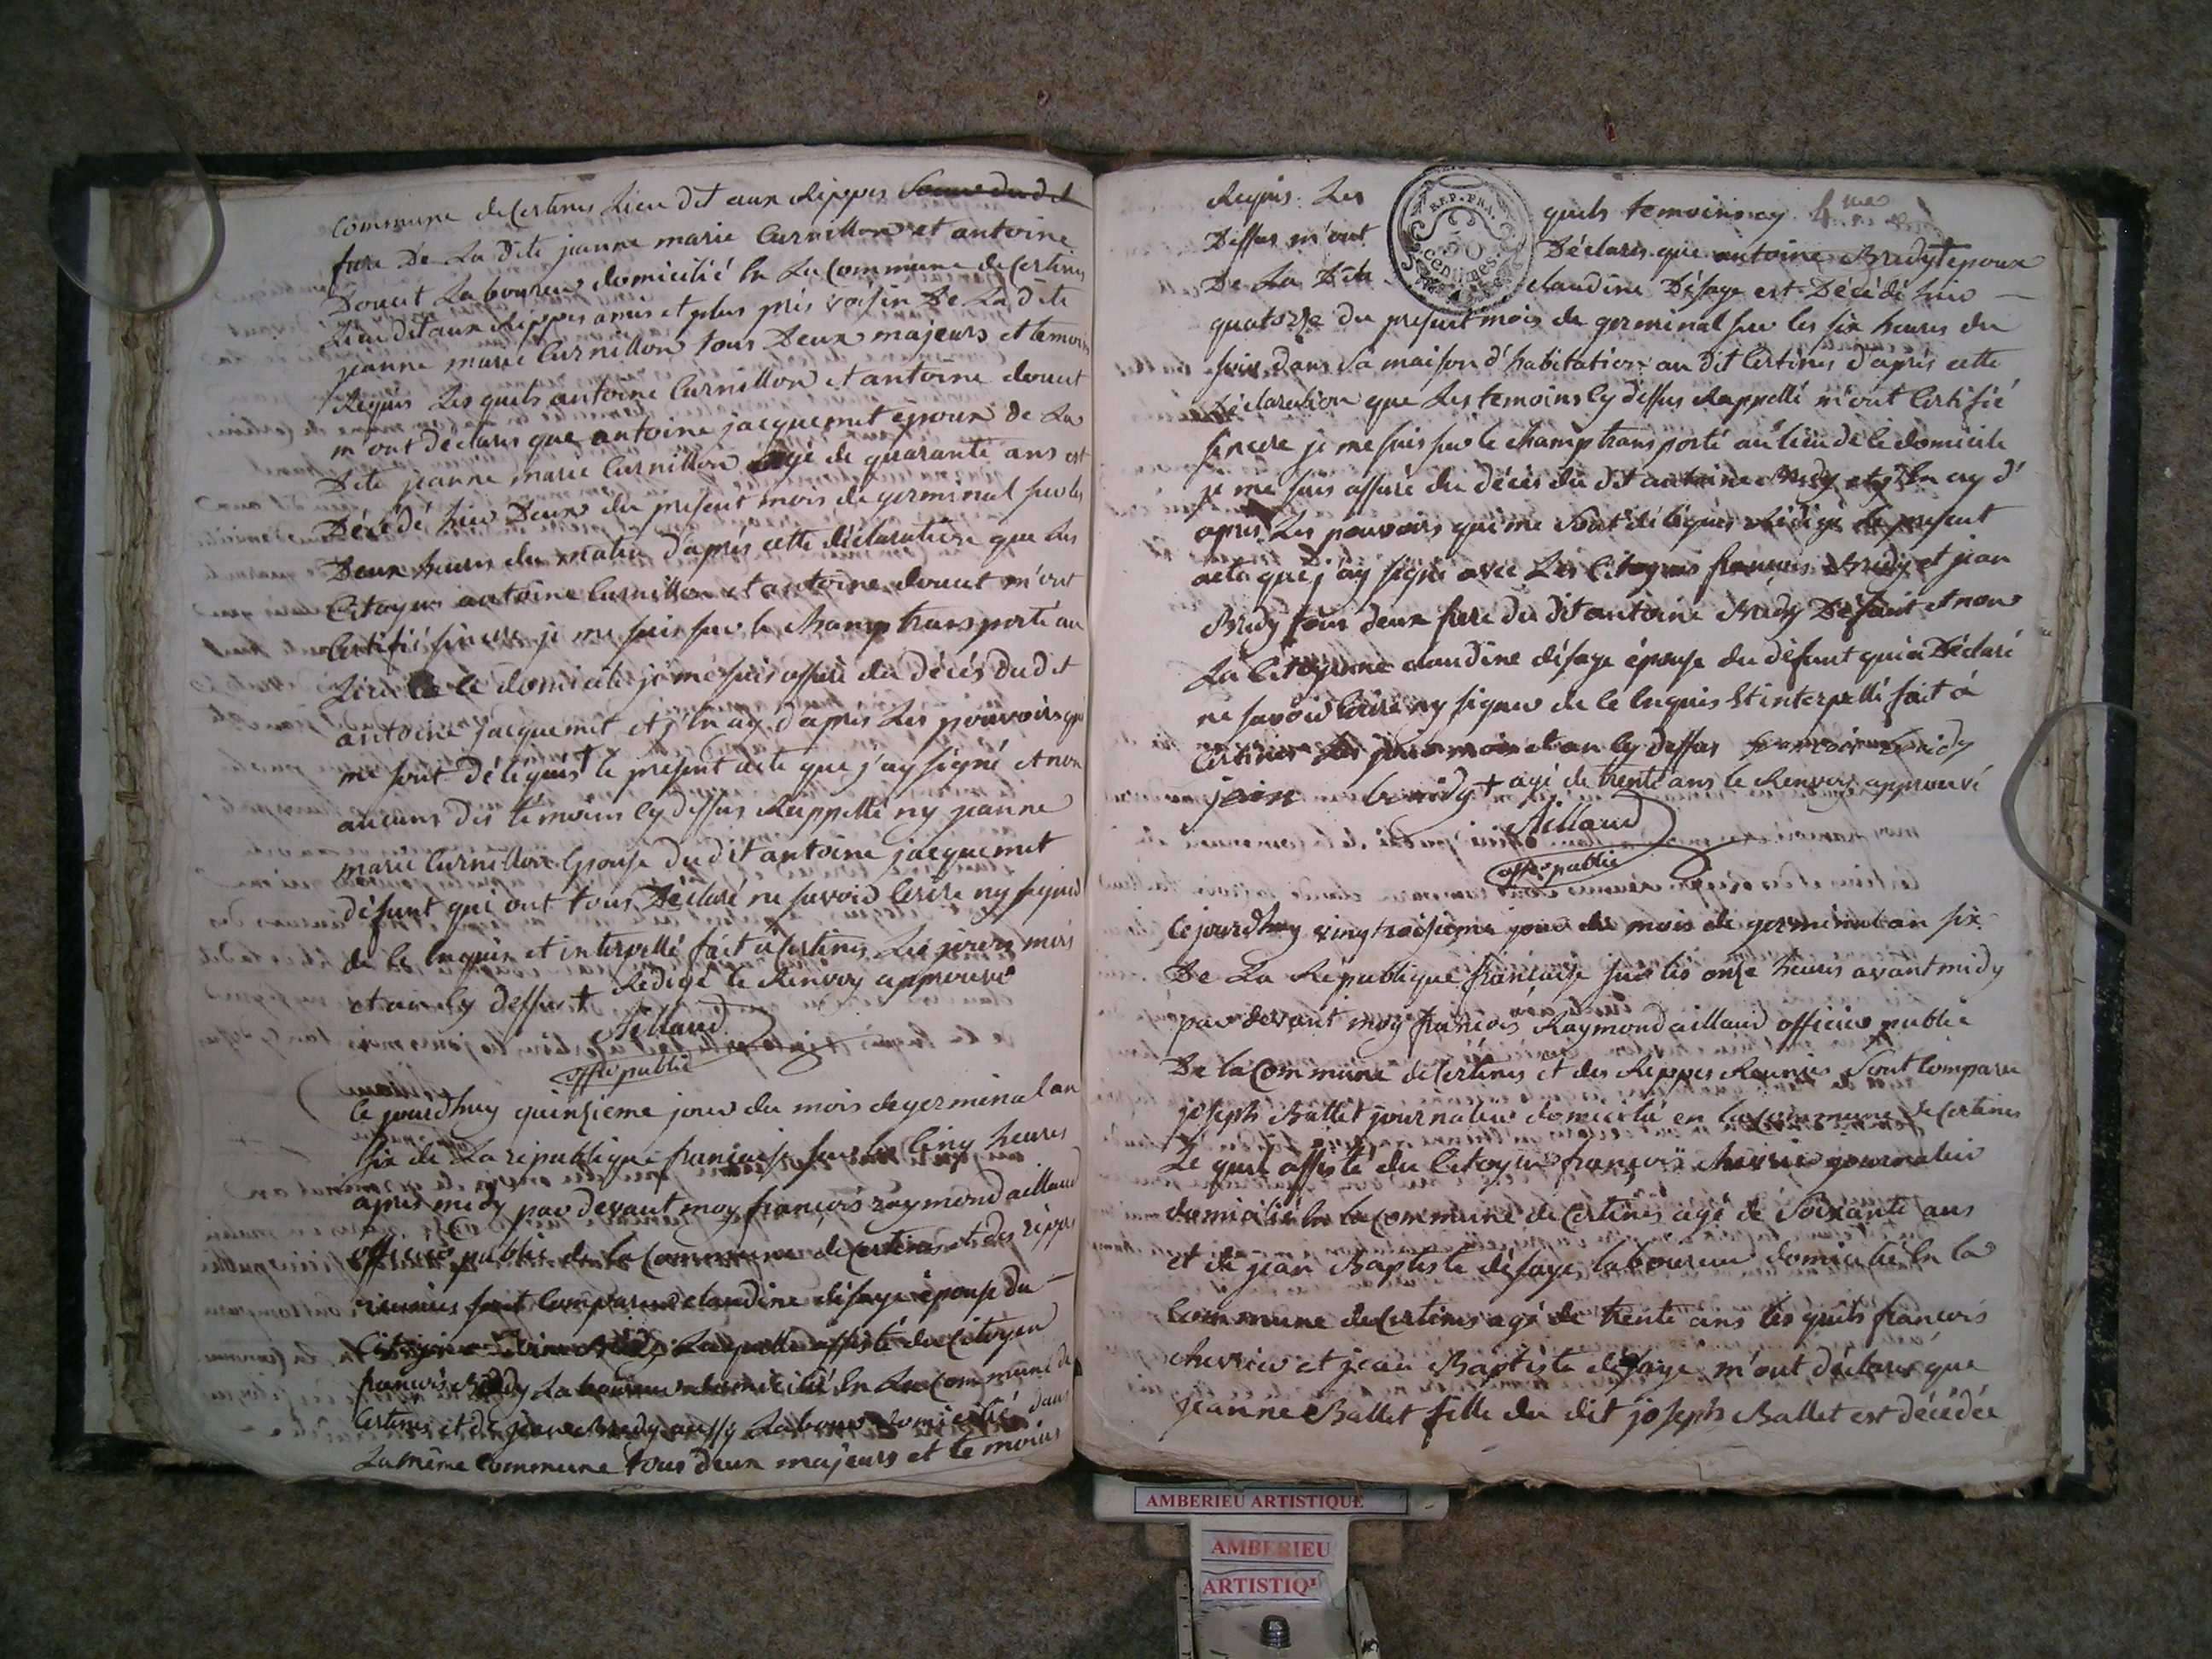 commune de Certines Lieu dit aux Rippes
frere De La Dite jeanne marie Curnillon et antoine
Douat Laboureur domicilié En La Commune de Certines
Lieu dit aux Rippes amis et plus près voisin De La dite
jeanne marie Curnillon tous Deux majeurs et temoins
Requis Les quels antoine Curnillon et antoine douat
m'ont déclarés que antoine jacquemet époux de La
Dite jeanne marie Curnillon agé de quarante ans est
Décédé hier Deux du present mois de germinal sur les
Deux heures du matin d'après cette déclaration que les
Citoyens antoine Curnillon et antoine douat m'ont
Certifié sincere je me suis sur le champ transporté au
Lieu de ce domicile je me suis assuré du décès du dit
antoine jacquemet et j'En ay d'après Les pouvoirs qui
me sont délégués + le present acte que j'ay signé et non
aucuns des témoins Cy dessus Rappellé ny jeanne
marie Curnillon Epouse du dit antoine jacquemet
défunt qui ont tous Déclaré ne savoir Ecrire ny signer
de ce Enquis et interpellé fait à Certines Les jours mois
et an Cy dessus + Redigé le Renvoy approuvé
Aillaud
offier public
Ce jourdhuy quinzieme jour du mois de germinal an
six de La république française sur les Cinq heures
après midy par devant moy françois raymond aillaud
officier public de la Commune de Certines et des rippes
réunies sont Comparus claudine désage épouse du
Citoyen antoine Bridy Laquelle assisté du Citoyen
françois Bridy Laboureur domicilié En La Commune de
Certines et de jean Bridy aussy Laboureur domicilié dans
La même Commune tous deux majeurs et témoins
Requis. Les quels temoins Cy 4me
Dessus m'ont Déclarés que antoine Bridy + époux
De La Dite claudine Désage est Décédé hier
quatorze du present mois de germinal sur les six heures du
soir dans sa maison d'habitation au dit Certines d'après cette
Déclaration que Les temoins Cy dessus Rappellé m'ont Certifié
sincere je me suis sur le champ transporté au lieu de ce domicile
je me suis assuré du décès du dit antoine Bridy et j'En ay d'
après Les pouvoirs qui me sont délégués Rédigé le present
acte que j'ay signé avec Les Citoyens françois Bridy et jean
Bridy tous deux frere du dit antoine Bridy Défunt et non
La Citoyenne claudine désage épouse du défunt qui a Déclaré
ne savoir Ecrire ny signer de ce Enquis Et interpellé fait à
Certines Les jour mois et an Cy dessus francois bridy
jean bridy + agé de trente ans le Renvoy approuvé
Aillaud
offier public
Ce jourdhuy vingt troisieme jour du mois de germinal an six
De La République française sur les onze heures avant midy
par devant moy françois Raymond aillaud officier public
De la Commune de Certines et des Rippes Réunies Sont Comparu
joseph Ballet journalier domicilié en la Commune de Certines
Le quel assisté du Citoyen françois chevrier journalier
domicilié En la Commune de Certines agé de Soixante ans
et de jean Baptiste désage laboureur domicilié En la
Commune de Certines agé de trente ans les quels françois
chevrier et jean Baptiste désage m'ont déclarés que
jeanne Ballet fille du dit joseph Ballet est décédée
REP. FRA.
50
centimes.
AMBERIEU ARTISTIQUE
AMBERIEU
ARTISTIQ